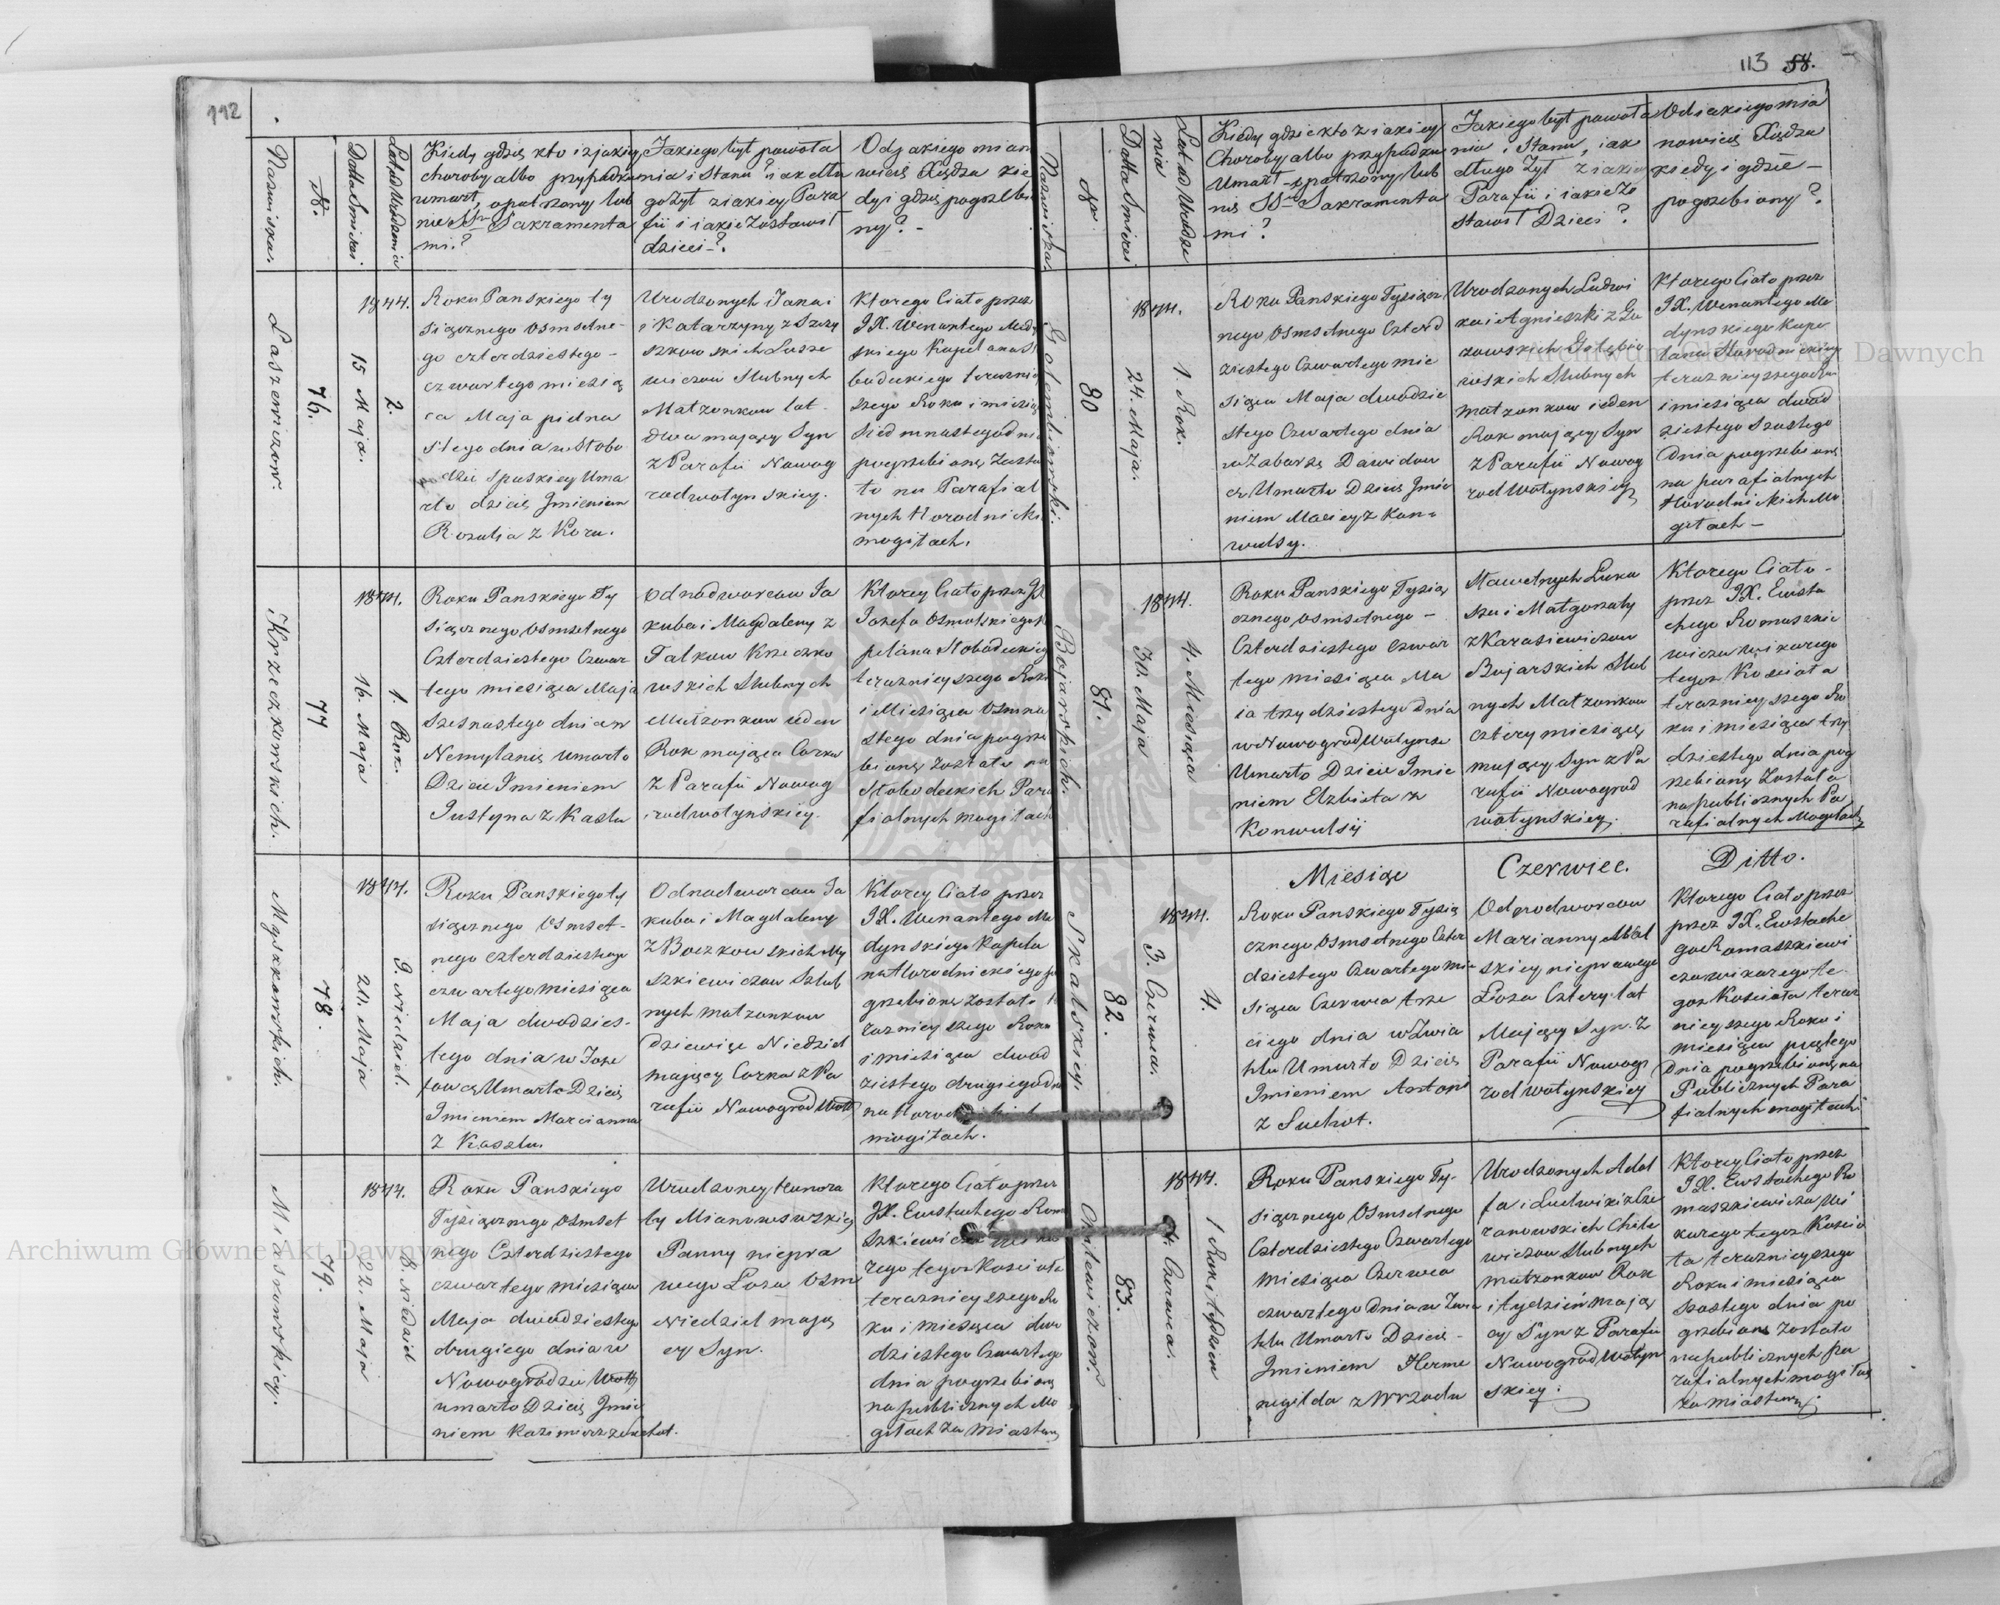 112
Nazwiska.
N.
Datta Smierci
Lat od Urodzenia
Kiedy gdzie kto i zjakiey
choroby albo przypadku
umarł, opatrzony lub
nie SSmi Sakramenta
mi?
Jakiego był powoła
nia i Stanu? iak dłu
go żył z iakiey Para
fii i iakie zostawił
dzieci?
Od jakiego miano
wicie Xiędza kie
dy i gdzie pogrzebio
ny?
Łaszewiczow.
76.
1844.
15 Maja.
2.
Roku Panskiego ty
siącznego osmsetne-
go czterdziestego-
czwartego miesią
ca Maja piętna
stego dnia w Słobo
dzie Spuskiey Uma
rło dziecie Jmieniem
Rozalia z Koru.
Urodzonych Jana i
i Katarzyny z Szczy
szkowskich Łasze
wiczow Slubnych
Małzonkow lat
dwa maiący Syn
z Parafii Nowog
rodwołynskiey.
Ktorego Ciało przez
JX. Wenantego Mody
skiego Kapelana S
bodeckiego teraznie
szego Roku i miesiąc
siedmnastego dnia
pogrzebione zosta
ło na Parafial
nych Horodnicki
mogiłach.
Krzeczkowskich.
77
1844.
16. Maja
1. Rok.
Roku Panskiego Ty
siącznego Osmsetnego
Czterdziestego Czwar
tego miesiąca Maja
szesnastego dnia w
Nemylanie umarło
Dziecie Jmieniem
Justyna z Kaszlu
Odnodworcow Ja
kuba i Magdaleny z
Falkow Krzeczko
wskich Slubnych
Małzonkow ieden
Rok maiąca Corka
z Parafii Nowog
rodwołynskiey.
Ktorey Ciało przez JX
Jozefa Osmulskiego K
pelana Słobodeckiey
teraznieyszego Roku
i Miesiąca Osmna
stego dnia pogrze
bione zostało na
Słobodeckich Para
fialnych mogiłach
Myszkowskich.
78.
1844.
20. Maja
9 Niedziel.
Roku Panskiego ty
siącznego Osmset-
nego czterdziestego
czwartego miesiąca
Maja dwudzies-
tego dnia w Joze
fowce Umarło Dziecie
Jmieniem Marcianna
z Kaszlu.
Odnodworcow Ja
kuba i Magdaleny
z Boczkowskich My
szkiewiczow Szlub
nych małzonkow
Dziewięc Niedziel
maiący Corka z Pa
rafii Nowogrodwoł
Ktorey Ciało przez
JX. Wenantego Mo
dynskiego Kapela
na Horodnickiego po
grzebione zostało te
raznieyszego Roku
i miesiąca dwud
ziestego drugiego dn
na
mogiłach.
79.
1844.
22. Maja
8. Niedziel
Roku Panskiego
Tysiącznego Osmset
nego Czterdziestego
czwartego miesiąca
Maja dwudziestego
drugiego dnia w
Nowogrodzie Woł
umarło Dziecie Jmie
niem Kazimierz z suchot.
Urodzoney Honora
ty
Panny niepra
wego Łoza Osm
Niedziel maią
cy Syn.
Ktorego Ciało przez
JX. Eustachego Roma
szkiewicza Wika
rego tegoż Kościoła
teraznieyszego Ro
ku i miesiąca dwu
dziestego Czwartego
dnia pogrzebione
na publicznych Mo
giłach za miastem
113 58.
Nazwiska.
N.
Datta Smierci
Lat od Urodze
nia
Kiedy gdzie kto z iakiey
Choroby albo przypadku
Umarł opatrzony lub
nie SSmi Sakramenta
mi?
Jakiego był powoła
nia i Stanu, iak
długo żył z iakiey
Parafii i iakie zo
stawił Dzieci?
Od iakiego mia
nowicie Xiędza
kiedy i gdzie-
pogrzebiony?
Gołembiowski.
80
1844.
24. Maja.
1. Rok.
Roku Panskiego Tysiącz
nego Osmsetnego Czterd
ziestego Czwartego mie
siąca Maja dwudzie
stego Czwartego dnia
w Zabarze Dawidow
ce Umarło Dziecie Jmie
niem Maciey z Kon-
wulsy.
Urodzonych Ludwi
ka i Agnieszki z Ga
zowskich Gołębio
wskich Slubnych
małzonkow ieden
Rok maiący Syn
z Parafii Nowog
rod Wołynskiey
Ktorego Ciało przez
JX. Wenantego Mo
dynskiego Kape
lana Horodnickiey
teraznieyszego Ro
i miesiąca dwud
ziestego szostego
Dnia pogrzebione
na parafialnych
Horodnickich Mo
giłach-
Bojarskich.
81.
1844.
30. Maja
4. Miesiąca
Roku Panskiego Tysią
cznego Osmsetnego-
Czterdziestego Czwar
tego miesiąca Ma
ia trzydziestego Dnia
w Nowogrodwołynsku
Umarło Dziecie Jmie
niem Elzbieta z
Konwulsij
Sławetnych Łuka
sza i Małgorzaty
z Karasiewiczow
Bojarskich Slub
nych Małzonkow
cztery miesiące
maiący Syn z Pa
rafii Nowogrod
wołynskiey.
Ktorego Ciało-
przez JX. Eusta
chego Romaszkie
wicza wikarego
tegoz Kosciola
teraznieyszego Ro
ku i miesiąca trzy
dziestego dnia pog
rzebione Zostało
na publicznych Pa
rafialnych Mogiłach
Miesiąc Czerwiec. Ditto.
Skalskiey.
82.
1844.
3. Czerwca.
4.
Roku Panskiego Tysią
cznego Osmsetnego Czter
dziestego Czwartego mie
siąca Czerwca trze
ciego dnia w Zwia
hlu Umarło Dziecie
Jmieniem Anton
z Suchot.
Odnodworcow
Marianny
skiey nieprawego
Łoza Cztery lat
Maiący Syn. Z
Parafii Nowog
rodwołynskiey
Ktorego Ciało przez
przez JX. Eustache
go Romaszkiewi
cza wikarego te-
goz Kościoła teraz
nieyszego Roku i
miesiąca piątego
Dnia pogrzebione na
Publicznych Para
fialnych mogiłach
Chilewiczow.
83.
1844.
4. Czerwca.
1 Rok i tydzien
Roku Panskiego Ty-
siącznego Osmsetnego
Czterdziestego Czwartego
miesiąca Czerwca
czwartego Dnia w Zwia
hlu Umarło Dziecie-
Jmieniem Herme
negilda z Wrzodu
Urodzonych Adol
fa i Ludwiki z Cze
ranowskich Chile
wiczow Slubnych
małzonkow Rok
i tydzień maią
cy Syn z Parafii
Nowogrodwołyn
skiey.
Ktorey Ciało przez
JX. Eustachego Ro
maszkiewicza Wi
karego tegoz Koscio
ła teraznieyszego
Roku i miesiąca
szostego dnia po
grzebione zostało
na publicznych pa
rafialnych mogiłach
za miastem.
Archiwum Główne Akt Dawnych
Archiwum Główne Akt Dawnych